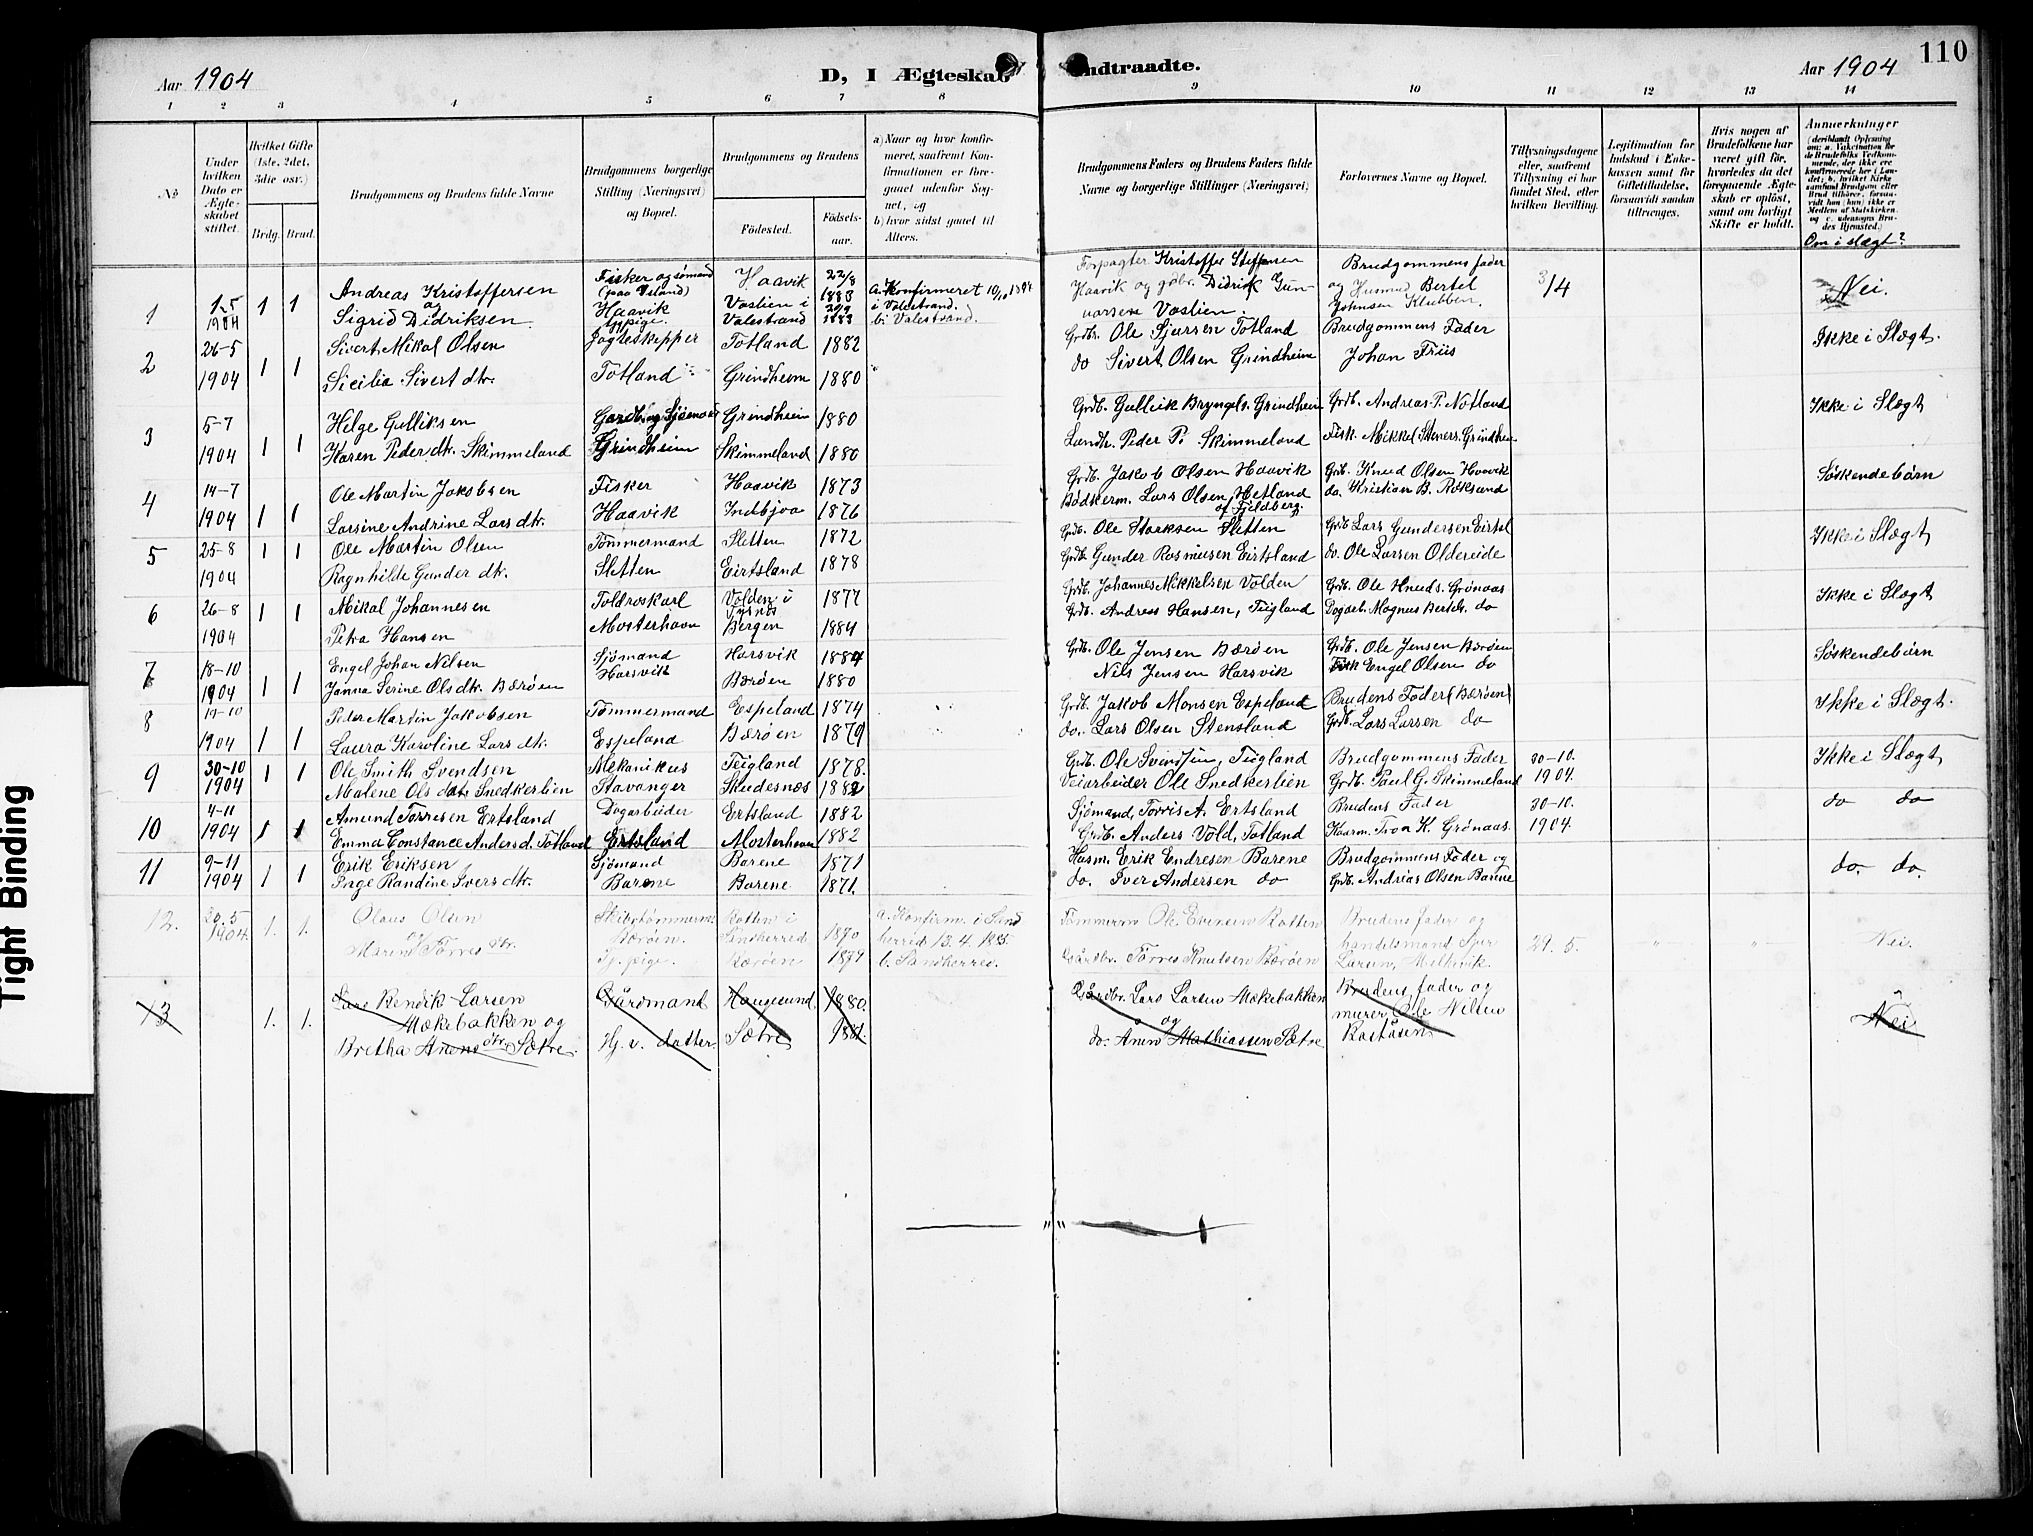 110
Aar 1904
D, I Ægteskab Indtraadte.
Aar 1904
1 2 3 4 5 6 7 8 9 10 11 12 13 14
No
Under hvilken Dato er Ægteskabet stiftet.
Hvilket Gifte (1ste, 2det, 3die osv.)
Brdg. Brud.
Brudgommens og Brudens fulde Navne
Brudgommens borgerlige Stilling (Næringsvei) og Bopæl.
Brudgommens og Brudens
Födested.
Födsels-aar.
a) Naar og hvor konfirmeret, saafremt Konfirmationen er foregaaet udenfor Sognet, og
b) hvor sidst gaaet til Alters.
Brudgommens Faders og Brudens Faders fulde Navne og borgerlige Stillinger (Næringsvei)
Forlovernes Navne og Bopæl.
Tillysningsdagene eller, saafremt Tillysning ei har fundet Sted, efter hvilken Bevilling.
Legitimation for Indskud i Enkekassen samt for Giftetilladelse, forsaavidt saadan tiltrænges.
Hvis nogen af Brudefolkene har været gift før, hvorledes da det foregaaende Ægteskab er oplöst, samt om lovligt Skifte er holdt.
Anmerkninger
Om i slægt?
1 15 1904 1 1
Andreas Kristoffersen
og
Sigrid Didriksen
Fisker og sømand
(paa Island)
Haavik
pige.
Haavik 22/8 1883
Vastien i
Valestrand 1883
a. Konfirmeret
i Valestrand.
b. Valestrand.
Forpagter Kristoffer Steffensen
Haavik og gdbr. Didrik Gun-
narsen Vastien.
Brudgommens fader
og Husmd Bertel
Johnsen Klubben.
3/4
Nei.
2 26-5 1904 1 1
Sivert Mikal Olsen
Sicilia Sivert dtr.
Jagteskipper
Totland
Totland 1882
Grindheim 1880
Grdbr. Ole Sjursen Totland
do Sivert Olsen Grindheim
Brudgommens Fader
Johan Friis
Ikke i Slægt.
3 5-7 1904 1 1
Helge Gulliksen
Karen Peder dtr. Skimmeland
Gardb. og Sjømand
Grindheim
Grindheim 1880
Skimmeland 1880
Grdb. Gullvik Bryngels. Grindheim
Landh. Peder P. Skimmeland
Grdb. Andreas P. Notland
Fisk. Mikkel Steners. Grindheim
Ikke i Slægt
4 14-7 1904 1 1
Ole Martin Jakobsen
Larsine Andrine Lars dtr.
Fisker
Haavik
Haavik 1873
Indbjoa 1876
Grdb. Jakob Olsen Haavik
Bødkerm. Lars Olsen Hetland
af Fjeldberg.
Grdb. Knud Olsen Haavik
do. Kristian B. Røksund
Søskendebörn
5 25-8 1904 1 1
Ole Martin Olsen
Ragnhilde Gunder dtr.
Tömmermand
Sletten
Sletten 1872
Eirtsland 1878
Grdb. Ole Storksen Sletten
Grdb. Gunder Rasmusen Eirtsland
Grdb Lars Gundersen Eirtsl
do. Ole Larsen Oldereide
Ikke i Slægt
6 26-8 1904 1 1
Mikal Johannesen
Petra Hansen
Toldroskarl
Mosterhavn
Volden i
Tysnes 1877
Bergen 1884
Grdb. Johannes Mikkelsen Volden
Grdb. Andreas Hansen, Tigland
Grdb. Ole Knuds. Grønaas
Dagarb. Magnus Bertels. do
Ikke i Slægt
7 18-10 1904 1 1
Engel Johan Nilsen
Janna Serine Ols dtr. Bærøen
Sjömand
Harsvik
Harsvik 1884
Bærøen 1880
Grdb. Ole Jensen Bærøen
Nils Jensen Harsvik
Grdb. Ole Jensen Bærøen
Fisk Engel Olsen do
Søskendebörn
8 19-10 1904 1 1
Peter Martin Jakobsen
Laura Karoline Lars dtr.
Tömmermand
Espeland
Espeland 1874
Bærøen 1879
Grdb. Jakob Monsen Espeland
do. Lars Olsen Stensland
Brudens Fader (Bærøen)
Grdb. Lars Larsen do
Ikke i Slægt.
9 30-10 1904 1 1
Ole Smith Svendsen
Malene Ols datr. Snedkerlien
Mekanikus
Stavanger
Teigland 1878.
Skudesnæs 1882
Grdb. Ole Svendsen, Tigland
Veiarbeider Ole Snedkerlien
Brudgommens Fader
Grdb. Paul G. Skimmeland
30-10.
1904.
Ikke i Slægt
10 4-11 1904 1 1
Amund Torrisen Ertsland
Emma Constance Andersd. Totland
Dagarbeider
Ertsland
Ertsland 1882
Mosterhavn 1882
Sjömand, Torris A. Ertsland
Grdb. Anders Vold, Totland
Brudens Fader
Kaarm. Tron K. Grönaas.
30-10.
1904.
do do
11 9-11 1904 1 1
Erik Eriksen
Inge Randine Ivers dtr.
Sjömand
Barene
Barene 1871
Barene 1871.
Husm. Erik Endresen Barene
do. Iver Andersen do
Brudgommens Fader og
Grdb. Andreas Olsen Barene
do. do.
12. 20.5 1904. 1. 1.
Olaus Olsen
og
Maren Torres dtr.
Skibstømmerm.
Bærøen.
Tj. pige.
Ratten i
Søndherred 1870
Bærøen 1879
a. Konfirm. i Sønd
herred 13.4.1885.
b. Søndherred.
Tømmerm Ole Evensen Ratten
Gårdbr. Torres Knutsen Bærøen
Brudens fader og
handelsmand Sjur
Larsen, Melkevik.
29. 5.
" "
Nei.
13 1. 1.
Lars Rendik Larsen
Mækebakken og
Bretha Anens dtr. Sætre.
Gårdmand
Hj. v. datter.
Haugesund 1880.
Sætre 1881.
Gårdbr. Lars Larsen Mækebakken
og
do. Anen Mathiassen Sætre.
Brudens fader og
murer Ole Nilsen
Roståsen
Nei
Tight Binding